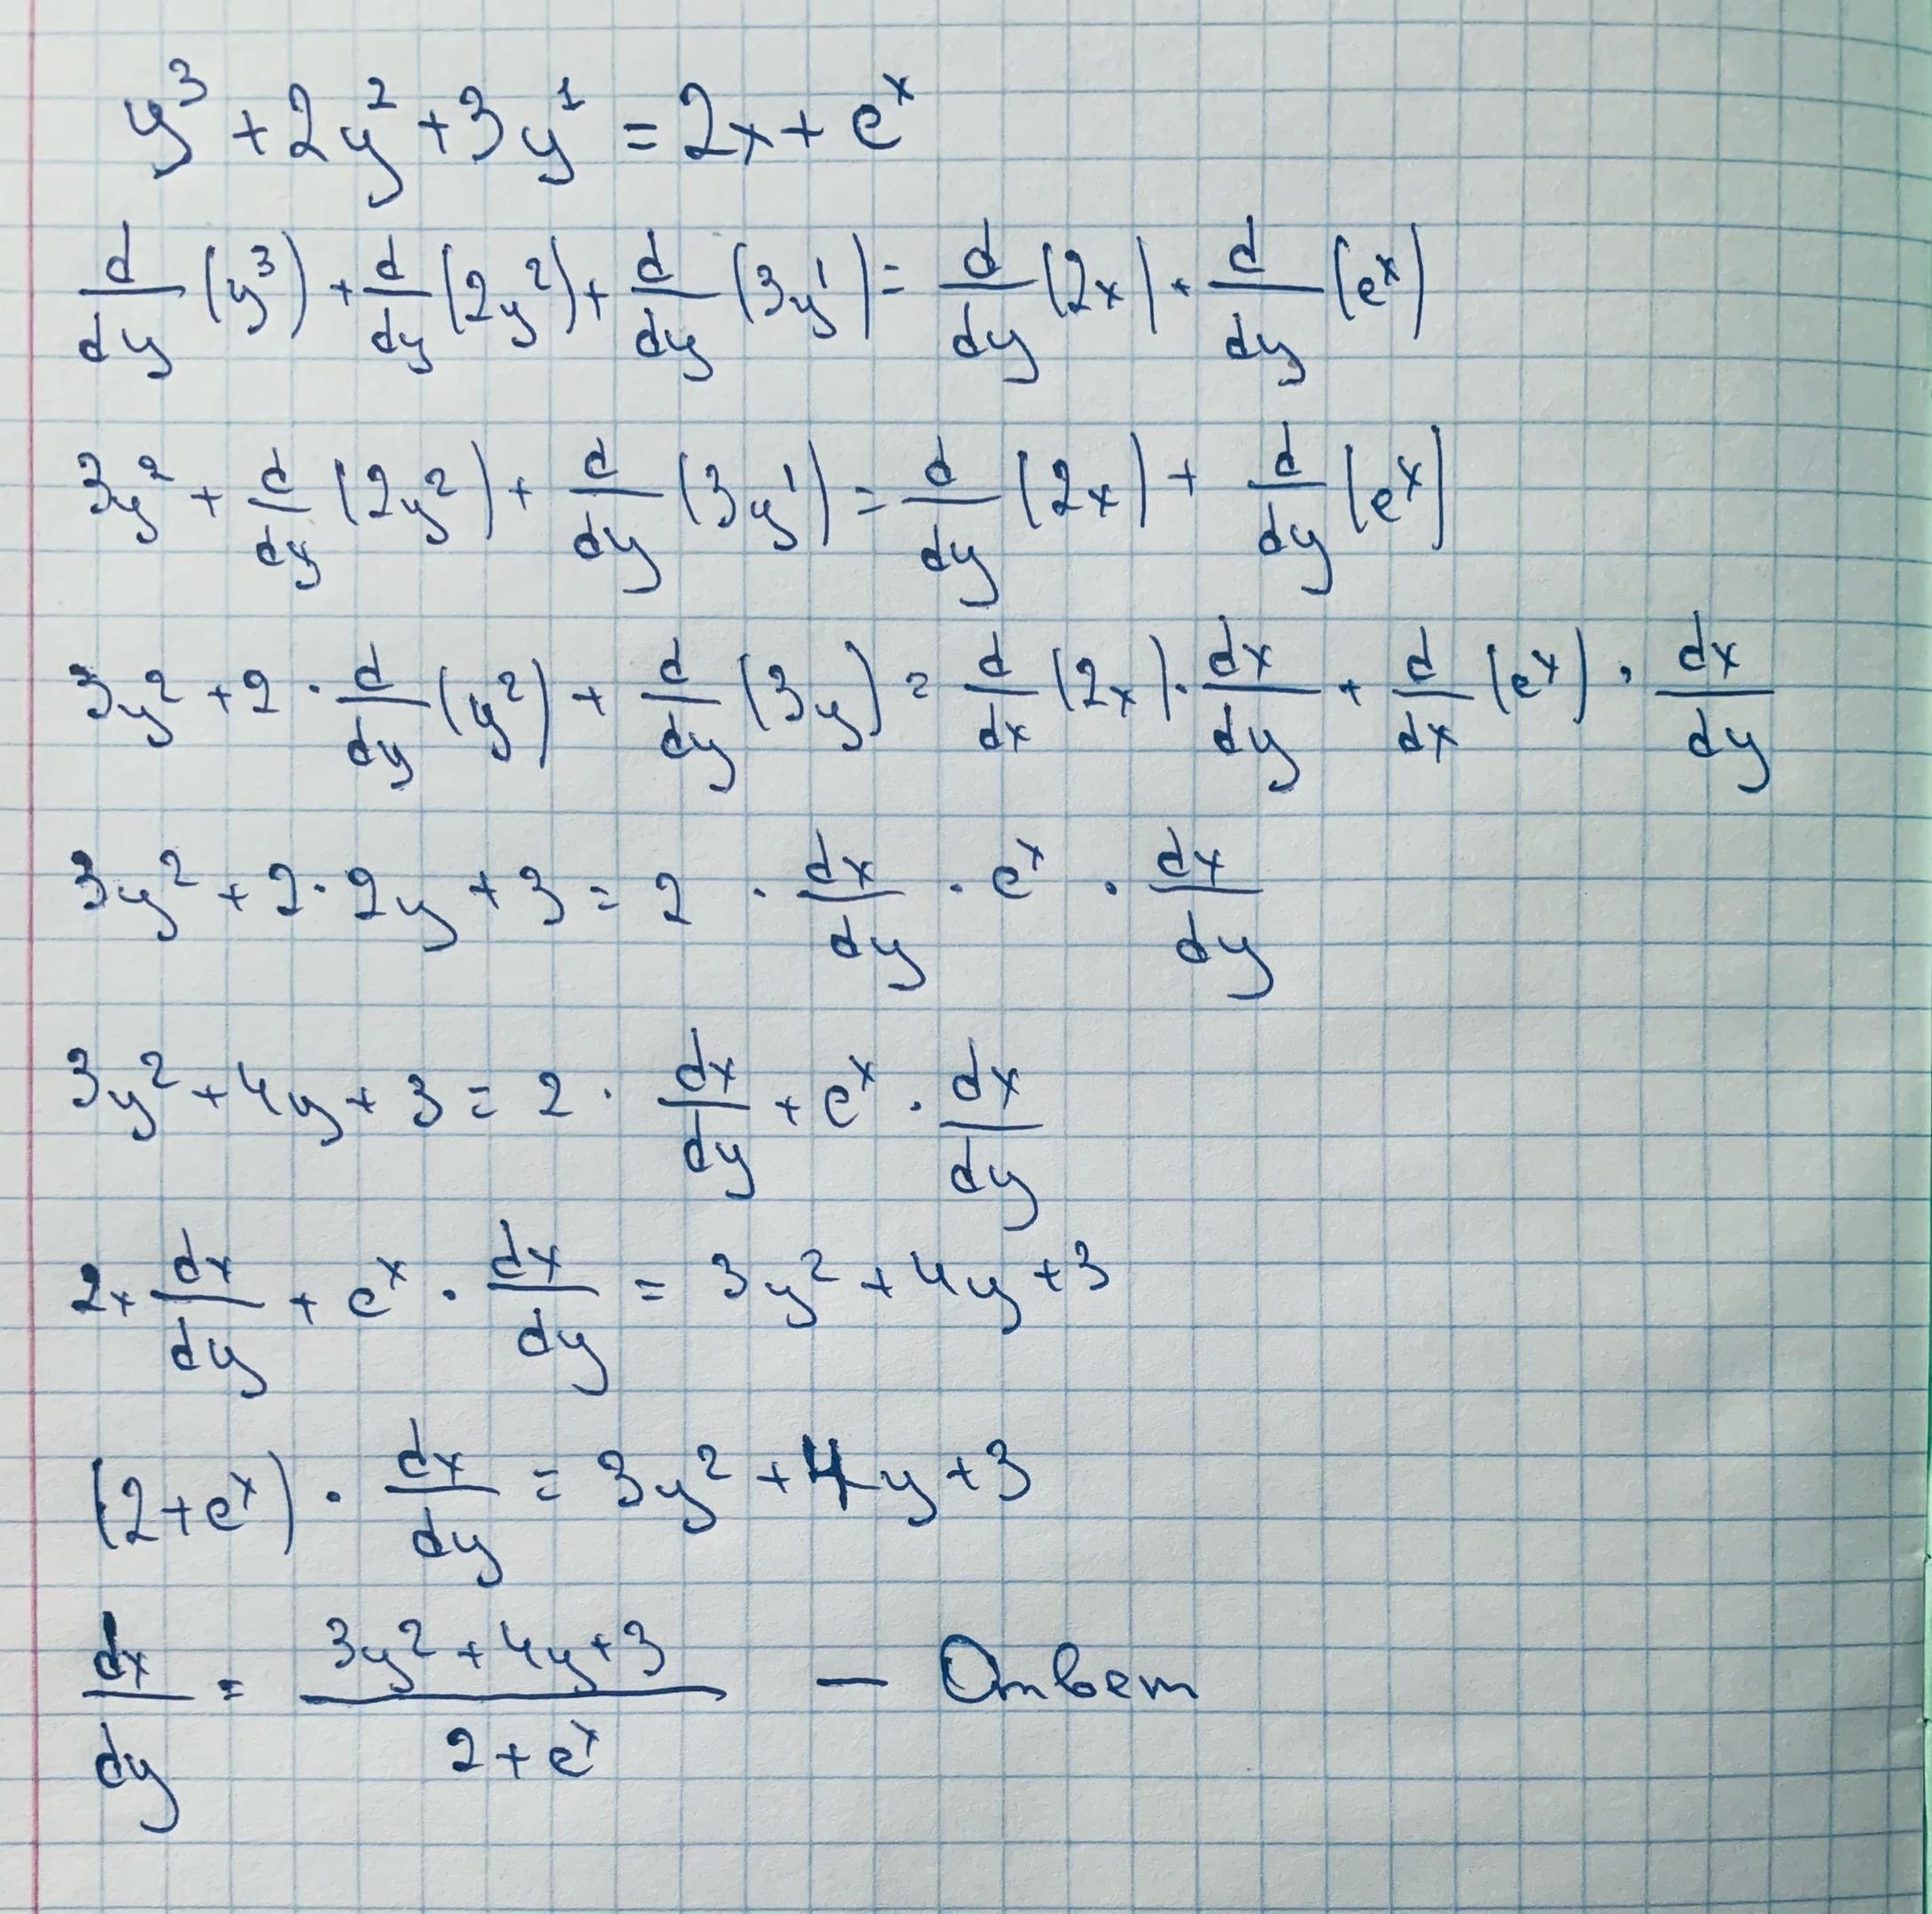 y³ + 2y² + 3y¹ = 2x + eˣ
d/dy (y³) + d/dy (2y²) + d/dy (3y¹) = d/dy (2x) + d/dy (eˣ)
3y² + d/dy (2y²) + d/dy (3y¹) = d/dy (2x) + d/dy (eˣ)
3y² + 2 · d/dy (y²) + d/dy (3y) = d/dx (2x) · dx/dy + d/dx (eˣ) · dx/dy
3y² + 2 · 2y + 3 = 2 · dx/dy · eˣ · dx/dy
3y² + 4y + 3 = 2 · dx/dy + eˣ · dx/dy
2 · dx/dy + eˣ · dx/dy = 3y² + 4y + 3
(2 + eˣ) · dx/dy = 3y² + 4y + 3
dx/dy = (3y² + 4y + 3)/(2 + eˣ) — Ответ